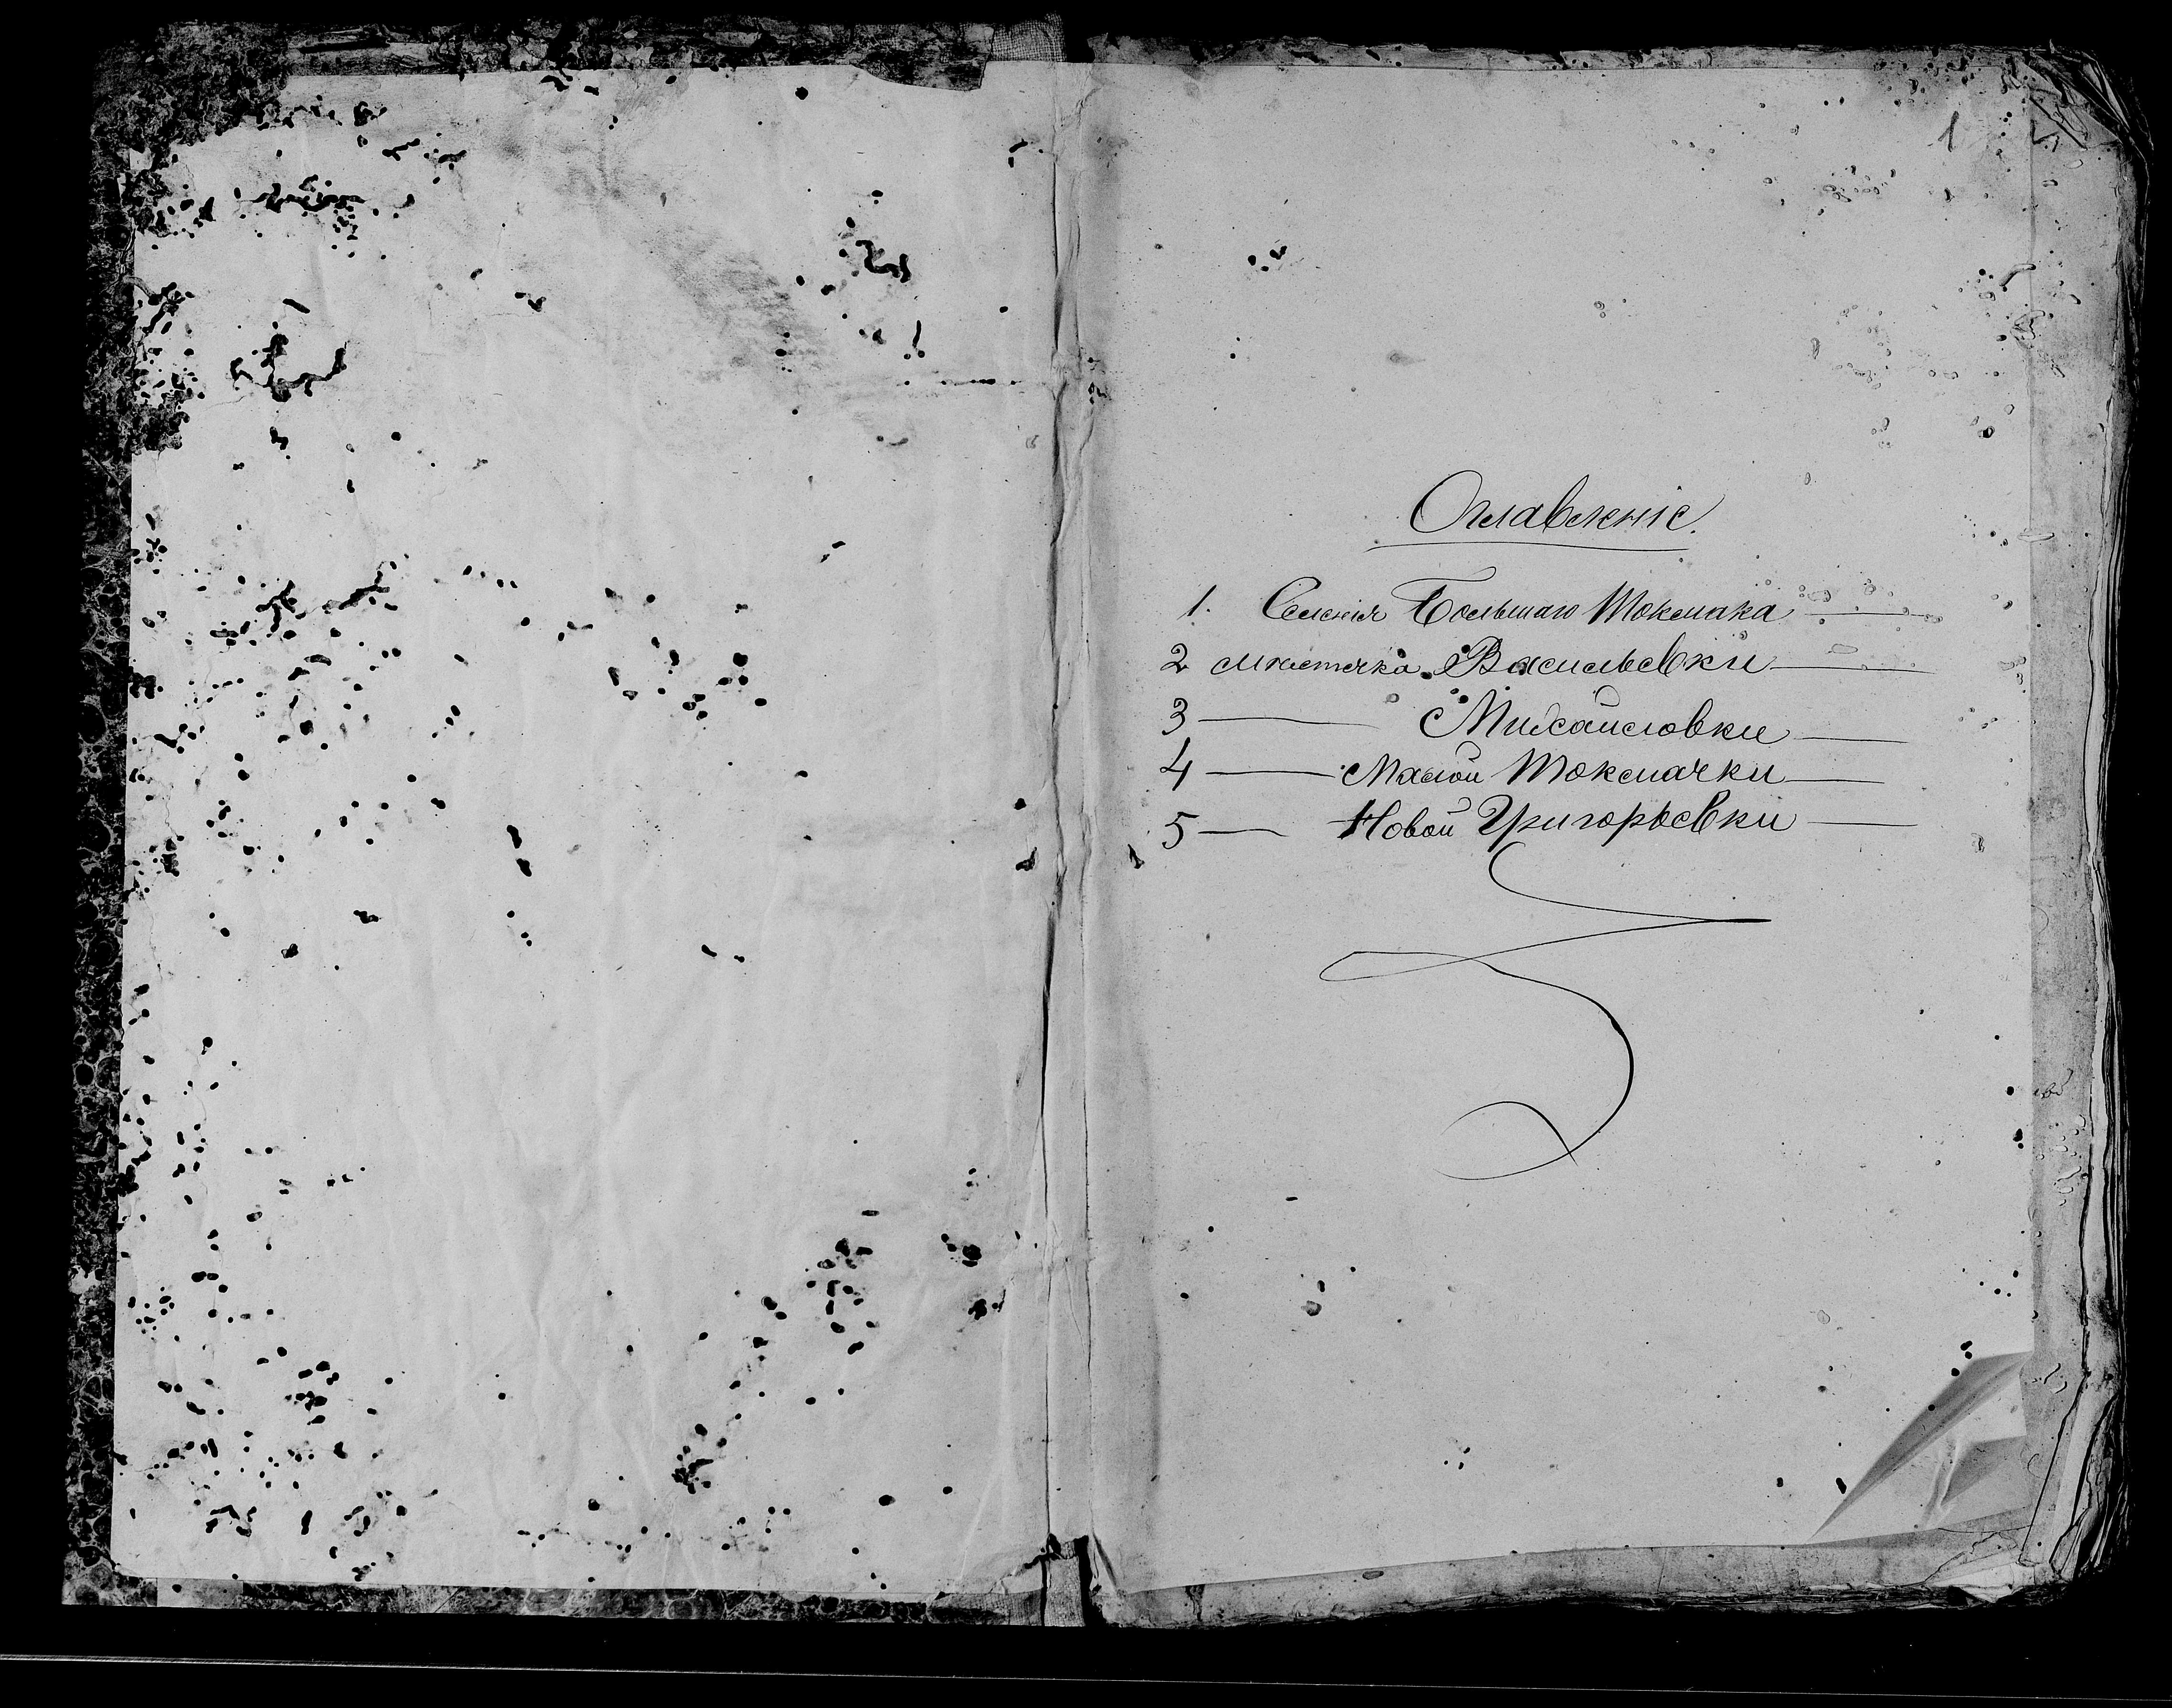 1
Оглавленіе.
1. Селенія Большаго Токмака
2 мѣстечка Васильевки
3 — Михайловки
4 — Малой Токмачки
5 — Новой Григорьевки